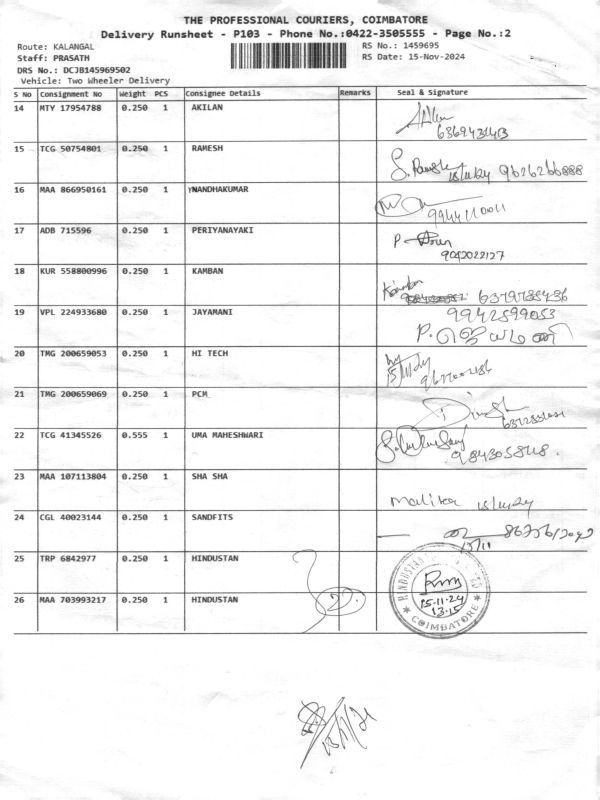 THE PROFESSIONAL COURIERS, COIMBATORE
Delivery Runsheet - P103 - Phone No.:0422-3505555 - Page No.:2
Route: KALANGAL
RS No.: 1459695
Staff: PRASATH
RS Date: 15-Nov-2024
DRS No.: DCJB145969502
Vehicle: Two Wheeler Delivery
S No Consignment No Weight PCS Consignee Details Remarks Seal & Signature
14 MTY 17954788 0.250 1 AKILAN
15 TCG 50754801 0.250 1 RAMESH
15/11/24 9626266888
16 MAA 866950161 0.250 1 YNANDHAKUMAR
9944110011
17 ADB 715596 0.250 1 PERIYANAYAKI
9042022127
18 KUR 558800996 0.250 1 KAMBAN
19 VPL 224933680 0.250 1 JAYAMANI
9942899053
P. ஜெயமணி
20 TMG 200659053 0.250 1 HI TECH
21 TMG 200659069 0.250 1 PCM
22 TCG 41345526 0.555 1 UMA MAHESHWARI
23 MAA 107113804 0.250 1 SHA SHA
15/11/24
24 CGL 40023144 0.250 1 SANDFITS
15/11
25 TRP 6842977 0.250 1 HINDUSTAN
HINDUSTAN
15.11.24
13.15
COIMBATORE
26 MAA 703993217 0.250 1 HINDUSTAN